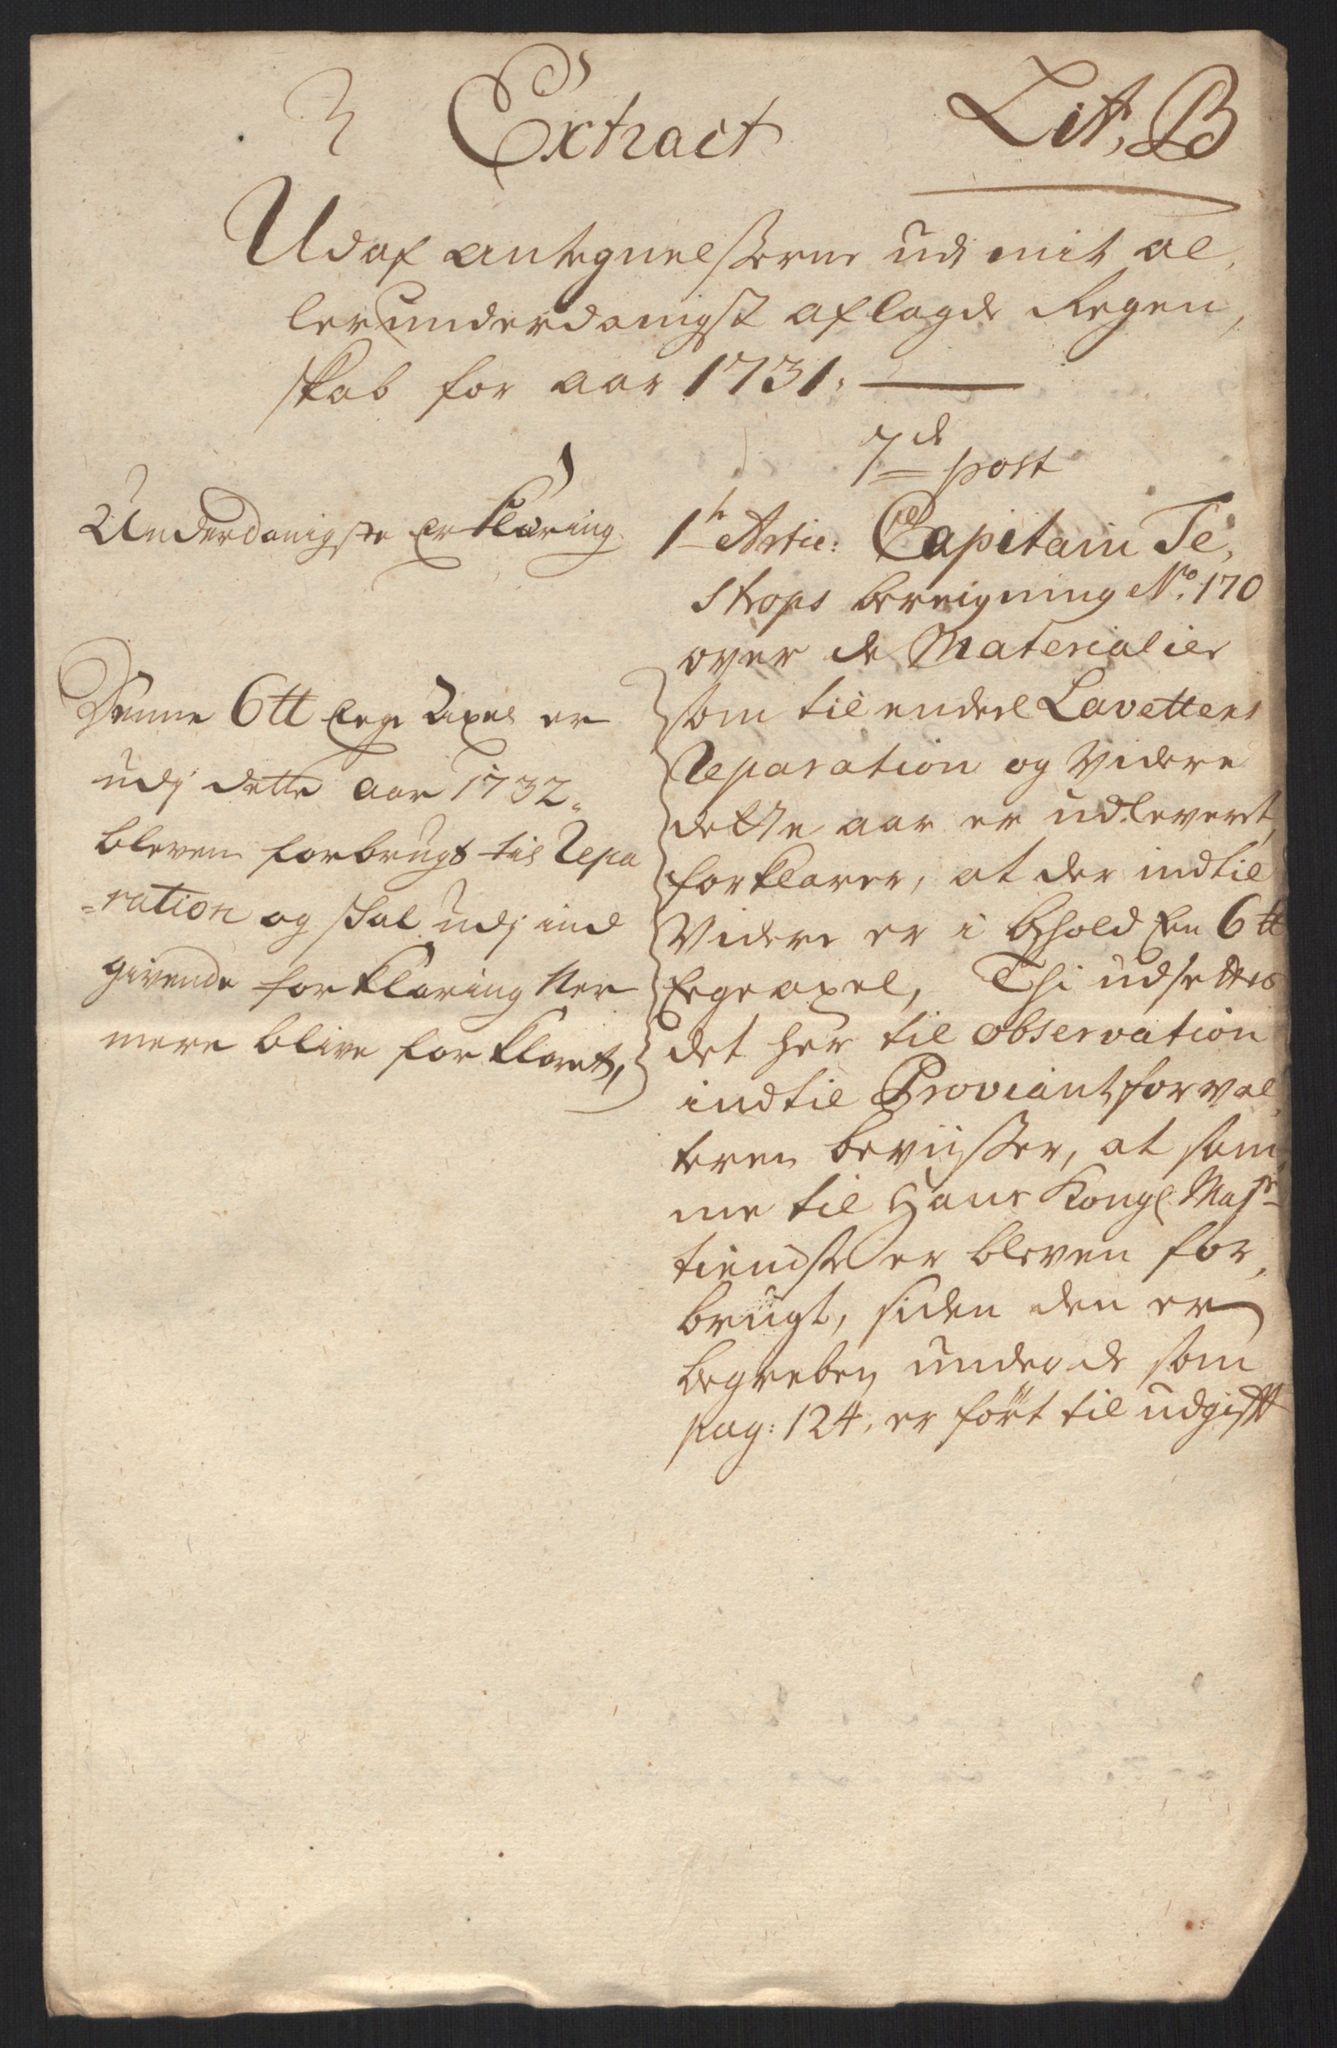 Extract
Lit, B
Udaf antegnelsserne udi mit al,
lerunderdanigst aflagde Regen,
skab for aar 1731.
7de post
Underdanigste Erklæring.
1te Artic: Capitain Te,
strops beregning No. 170
over de Materialier
som til endeel Lavetters
Reparation og videre
dette aar er udleveret,
forklarer, at der indtil
videre er i behold Een 6 tt
Eege axel, Thi udsettes
det her til observation
indtil Proviantforval,
teren beviisser, at sam,
me til Hans Kongl. Majts
tieniste er bleven for,
brugt, siden den er
begreben under de som
pag: 124, er ført til udgifft
Denne 6 tt Eege Axel er
udj dette Aar 1732.
bleven forbrugt til Repa
-ration og skal udj ind
givende forklaring Ner
mere blive forklaret,